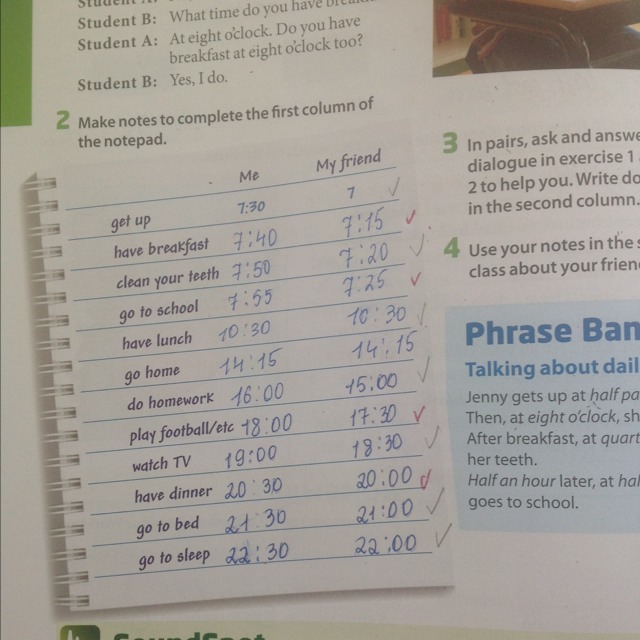 Student B: What time do you have
Student A: At eight o'clock. Do you have
breakfast at eight o'clock too?
Student B: Yes, I do.
2 Make notes to complete the first column of
the notepad.
Me My friend
get up 7:30 7
have breakfast 7:40 7:15
clean your teeth 7:50 7:20
go to school 7:55 7:25
have lunch 10:30 10:30
go home 14:15 14:15
do homework 16:00 15:00
play football/etc 18:00 17:30
watch TV 19:00 18:30
have dinner 20:30 20:00
go to bed 21:30 21:00
go to sleep 22:30 22:00
3 In pairs, ask and
dialogue in exercise 1
2 to help you. Write
in the second column.
4 Use your notes in the
class about your
Phrase
Talking about
Jenny gets up at half
Then, at eight o'clock,
After breakfast, at
her teeth.
Half an hour later, at
goes to school.